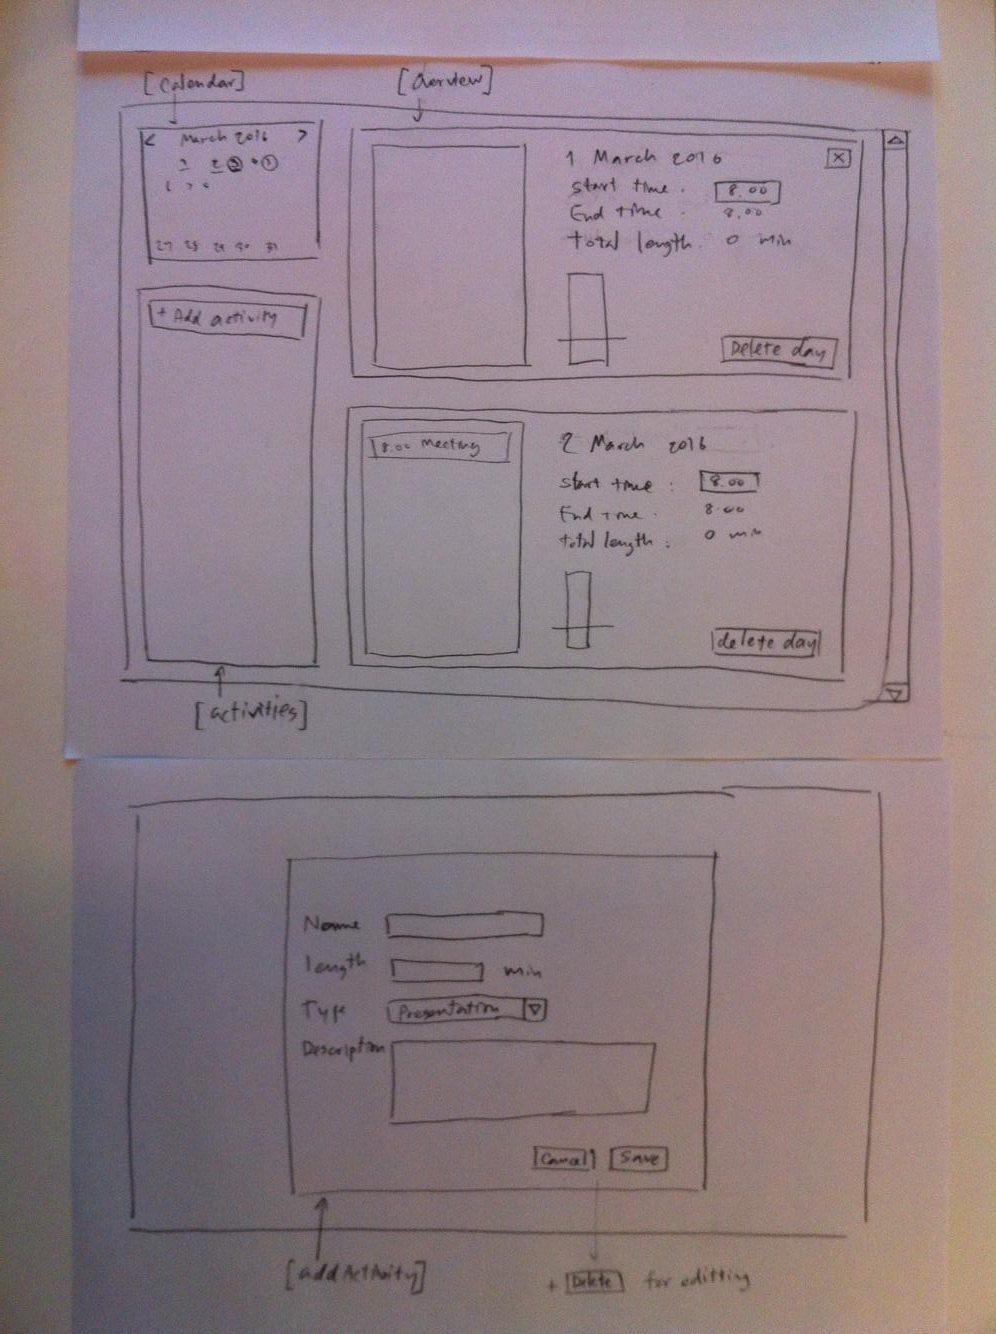 [Calendar]
[Overview]
< March 2016 >
1 2 3
27 28 29 30 31
+ Add activity
[activities]
1 March 2016
X
Start time : 8.00
End time : 8.00
Total length : 0 min
Delete day
8.00 Meeting
2 March 2016
Start time : 8.00
End time : 8.00
Total length : 0 min
delete day
Name
length min
Type Presentation
Description
Cancel Save
[addActivity]
+ Delete for editting